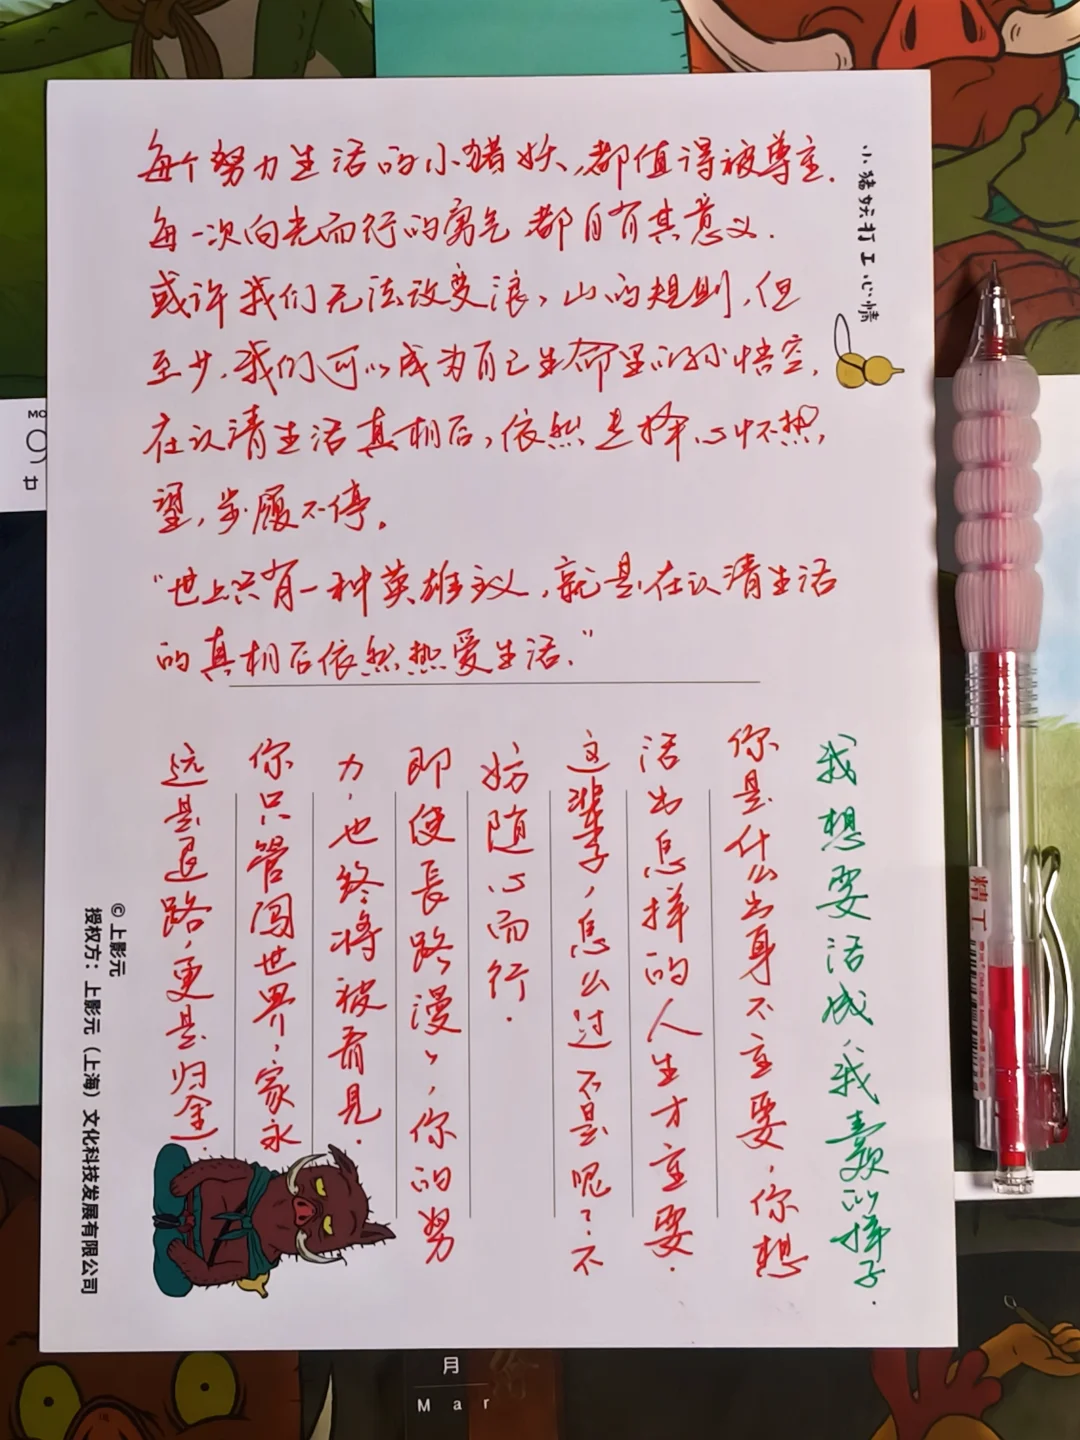 每个努力生活的小猪妖,都值得被尊重.
每一次向光而行的勇气都自有其意义.
或许我们无法改变浪ゝ山的规则,但
至少,我们可以成为自己生命里的小悟空,
在认清生活真相后,依然选择心怀热,
望,步履不停。
"世上只有一种英雄主义,就是在认清生活
的真相后依然热爱生活."
小猪妖打工心情
我想要活成,我喜欢的样子.
你是什么出身不重要,你想
活出怎样的人生才重要.
这辈子,怎么过不是呢?不
妨随心而行.
即使長路漫ゝ,你的努
力,也终将被看见.
你只管闯世界,家永
远是退路,更是归途.
©上影元
授权方：上影元（上海）文化科技发展有限公司
MO
9
廿
精工
月
Mar